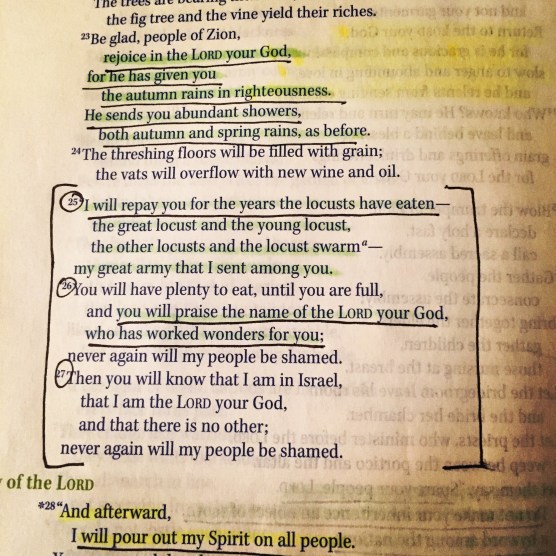 The trees are bearing
the fig tree and the vine yield their riches.
23Be glad, people of Zion,
rejoice in the LORD your God,
for he has given you
the autumn rains in righteousness.
He sends you abundant showers,
both autumn and spring rains, as before.
24The threshing floors will be filled with grain;
the vats will overflow with new wine and oil.
25“I will repay you for the years the locusts have eaten—
the great locust and the young locust,
the other locusts and the locust swarma—
my great army that I sent among you.
26You will have plenty to eat, until you are full,
and you will praise the name of the LORD your God,
who has worked wonders for you;
never again will my people be shamed.
27Then you will know that I am in Israel,
that I am the LORD your God,
and that there is no other;
never again will my people be shamed.
of the LORD
*28“And afterward,
I will pour out my Spirit on all people.